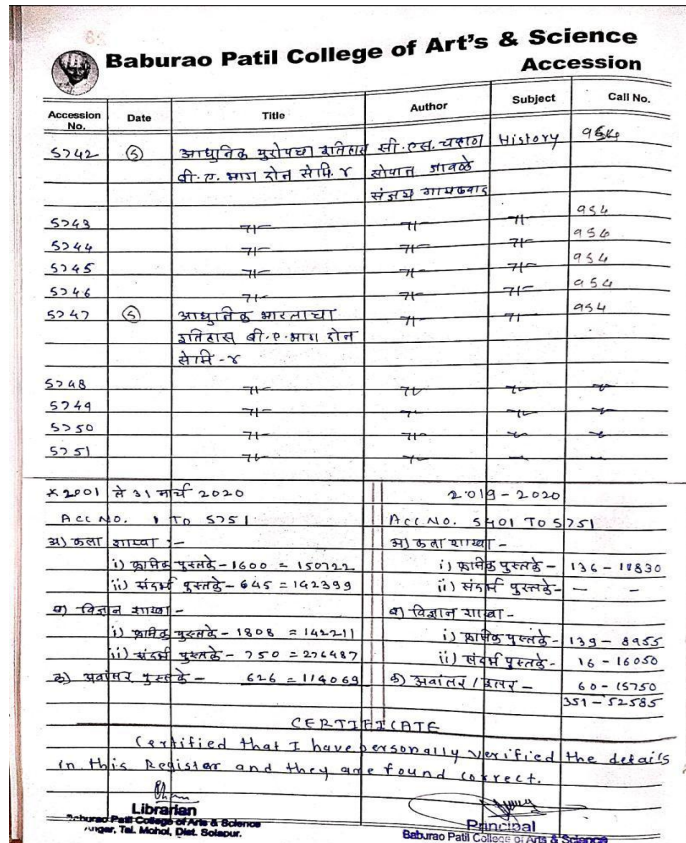 Baburao Patil College of Art's & Science
Accession
Accession No. Date Title Author Subject Call No.
5742 (5) आधुनिक युरोपचा इतिहास सी.एस. चव्हाण History 954
बी.ए. भाग दोन सेमि. ४ सोपान जावळे
संजय गायकवाड
5743 —॥— —॥— —॥— 954
5744 —॥— —॥— —॥— 954
5745 —॥— —॥— —॥— 954
5746 —॥— —॥— —॥— 954
5747 (5) आधुनिक भारताचा —॥— —॥— 954
इतिहास बी.ए. भाग दोन
सेमि-४
5748 —॥— —॥— —॥— —॥—
5749 —॥— —॥— —॥— —॥—
5750 —॥— —॥— —॥— —॥—
5751 —॥— —॥— —॥— —॥—
2001 ते 31 मार्च 2020
Acc No. 1 To 5751
अ) कला शाखा :-
i) क्रामिक पुस्तके - 1600 = 150722
ii) संदर्भ पुस्तके - 645 = 142399
ब) विज्ञान शाखा -
i) क्रामिक पुस्तके - 1808 = 142211
ii) संदर्भ पुस्तके - 750 = 276487
क) अवांतर पुस्तके - 626 = 114069
2019 - 2020
Acc No. 5401 To 5751
अ) कला शाखा -
i) क्रामिक पुस्तके - 136 - 11830
ii) संदर्भ पुस्तके - — -
ब) विज्ञान शाखा -
i) क्रामिक पुस्तके - 139 - 8955
ii) संदर्भ पुस्तके - 16 - 16050
क) अवांतर / इतर - 60 - 15750
351 - 52585
CERTIFICATE
Certified that I have personally verified the details
in this Register and they are found correct.
Librarian
Baburao Patil College of Arts & Science
Angar, Tal. Mohol, Dist. Solapur.
Principal
Baburao Patil College of Arts & Science